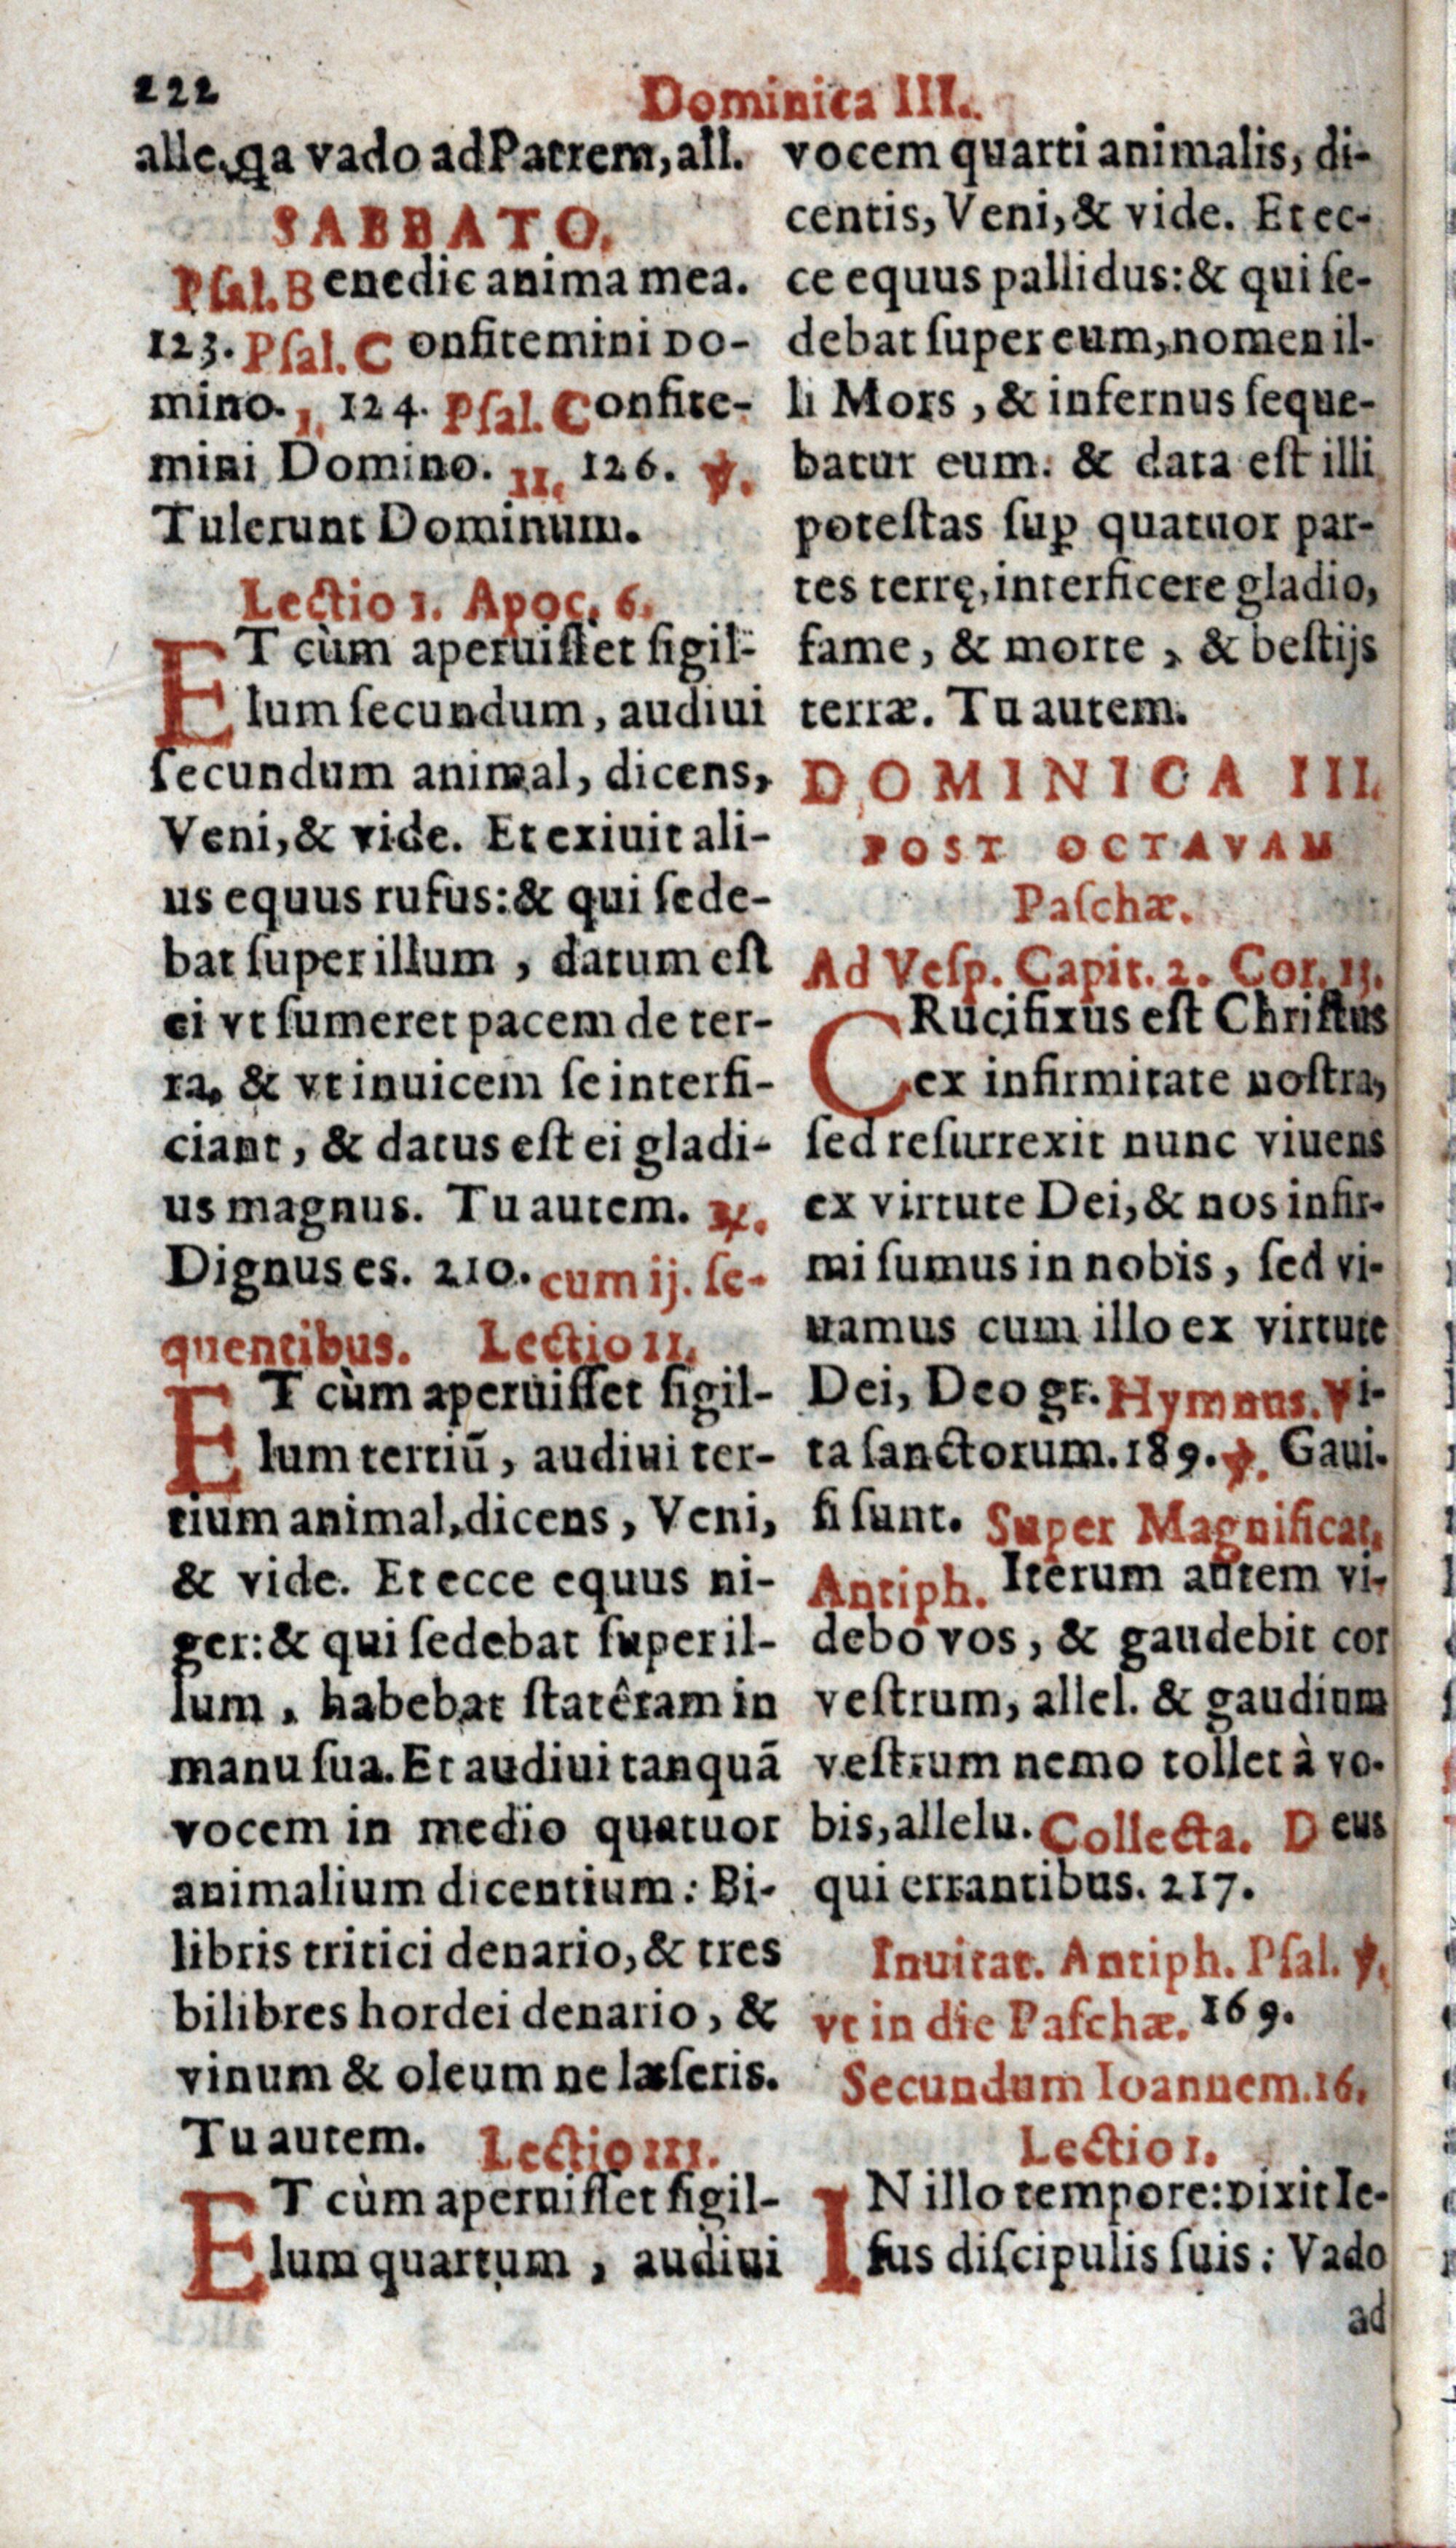 222
Dominica III.
alle. qa vado ad Patrem, all.
SABBATO.
Pſal. Benedic anima mea.
123. Pſal. Confitemini Do-
mino. 1. 124. Pſal. Confite-
mini Domino. 11. 126. ℣.
Tulerunt Dominum.
Lectio 1. Apoc. 6.
ET cùm aperuiſſet ſigil-
lum ſecundum, audiui
ſecundum animal, dicens,
Veni, & vide. Et exiuit ali-
us equus rufus: & qui ſede-
bat ſuper illum, datum eſt
ei vt ſumeret pacem de ter-
ra, & vt inuicem ſe interfi-
ciant, & datus eſt ei gladi-
us magnus. Tu autem. ℟.
Dignus es. 210. cum ij. ſe-
quentibus. Lectio 11.
ET cùm aperuiſſet ſigil-
lum tertiū, audiui ter-
tium animal, dicens, Veni,
& vide. Et ecce equus ni-
ger: & qui ſedebat ſuper il-
lum, habebat ſtatêram in
manu ſua. Et audiui tanquā
vocem in medio quatuor
animalium dicentium: Bi-
libris tritici denario, & tres
bilibres hordei denario, &
vinum & oleum ne læſeris.
Tu autem. Lectio 111.
ET cùm aperuiſſet ſigil-
lum quartum, audiui
vocem quarti animalis, di-
centis, Veni, & vide. Et ec-
ce equus pallidus: & qui ſe-
debat ſuper eum, nomen il-
li Mors, & infernus ſeque-
batur eum. & data eſt illi
poteſtas ſuꝑ quatuor par-
tes terrę, interficere gladio,
fame, & morte, & beſtijs
terræ. Tu autem.
DOMINICA III.
POST OCTAVAM
Paſchæ.
Ad Veſp. Capit. 2. Cor. 13.
CRucifixus eſt Chriſtus
ex infirmitate noſtra,
ſed reſurrexit nunc viuens
ex virtute Dei, & nos infir-
mi ſumus in nobis, ſed vi-
uamus cum illo ex virtute
Dei, Deo gr. Hymnus. Vi-
ta ſanctorum. 189. ℣. Gaui-
ſi ſunt. Super Magnificat,
Antiph. Iterum autem vi-
debo vos, & gaudebit cor
veſtrum, allel. & gaudium
veſtrum nemo tollet à vo-
bis, allelu. Collecta. Deus
qui errantibus. 217.
Inuitat. Antiph. Pſal. ℣.
vt in die Paſchæ. 169.
Secundum Ioannem. 16.
Lectio 1.
IN illo tempore: Dixit Ie-
ſus diſcipulis ſuis: Vado
ad